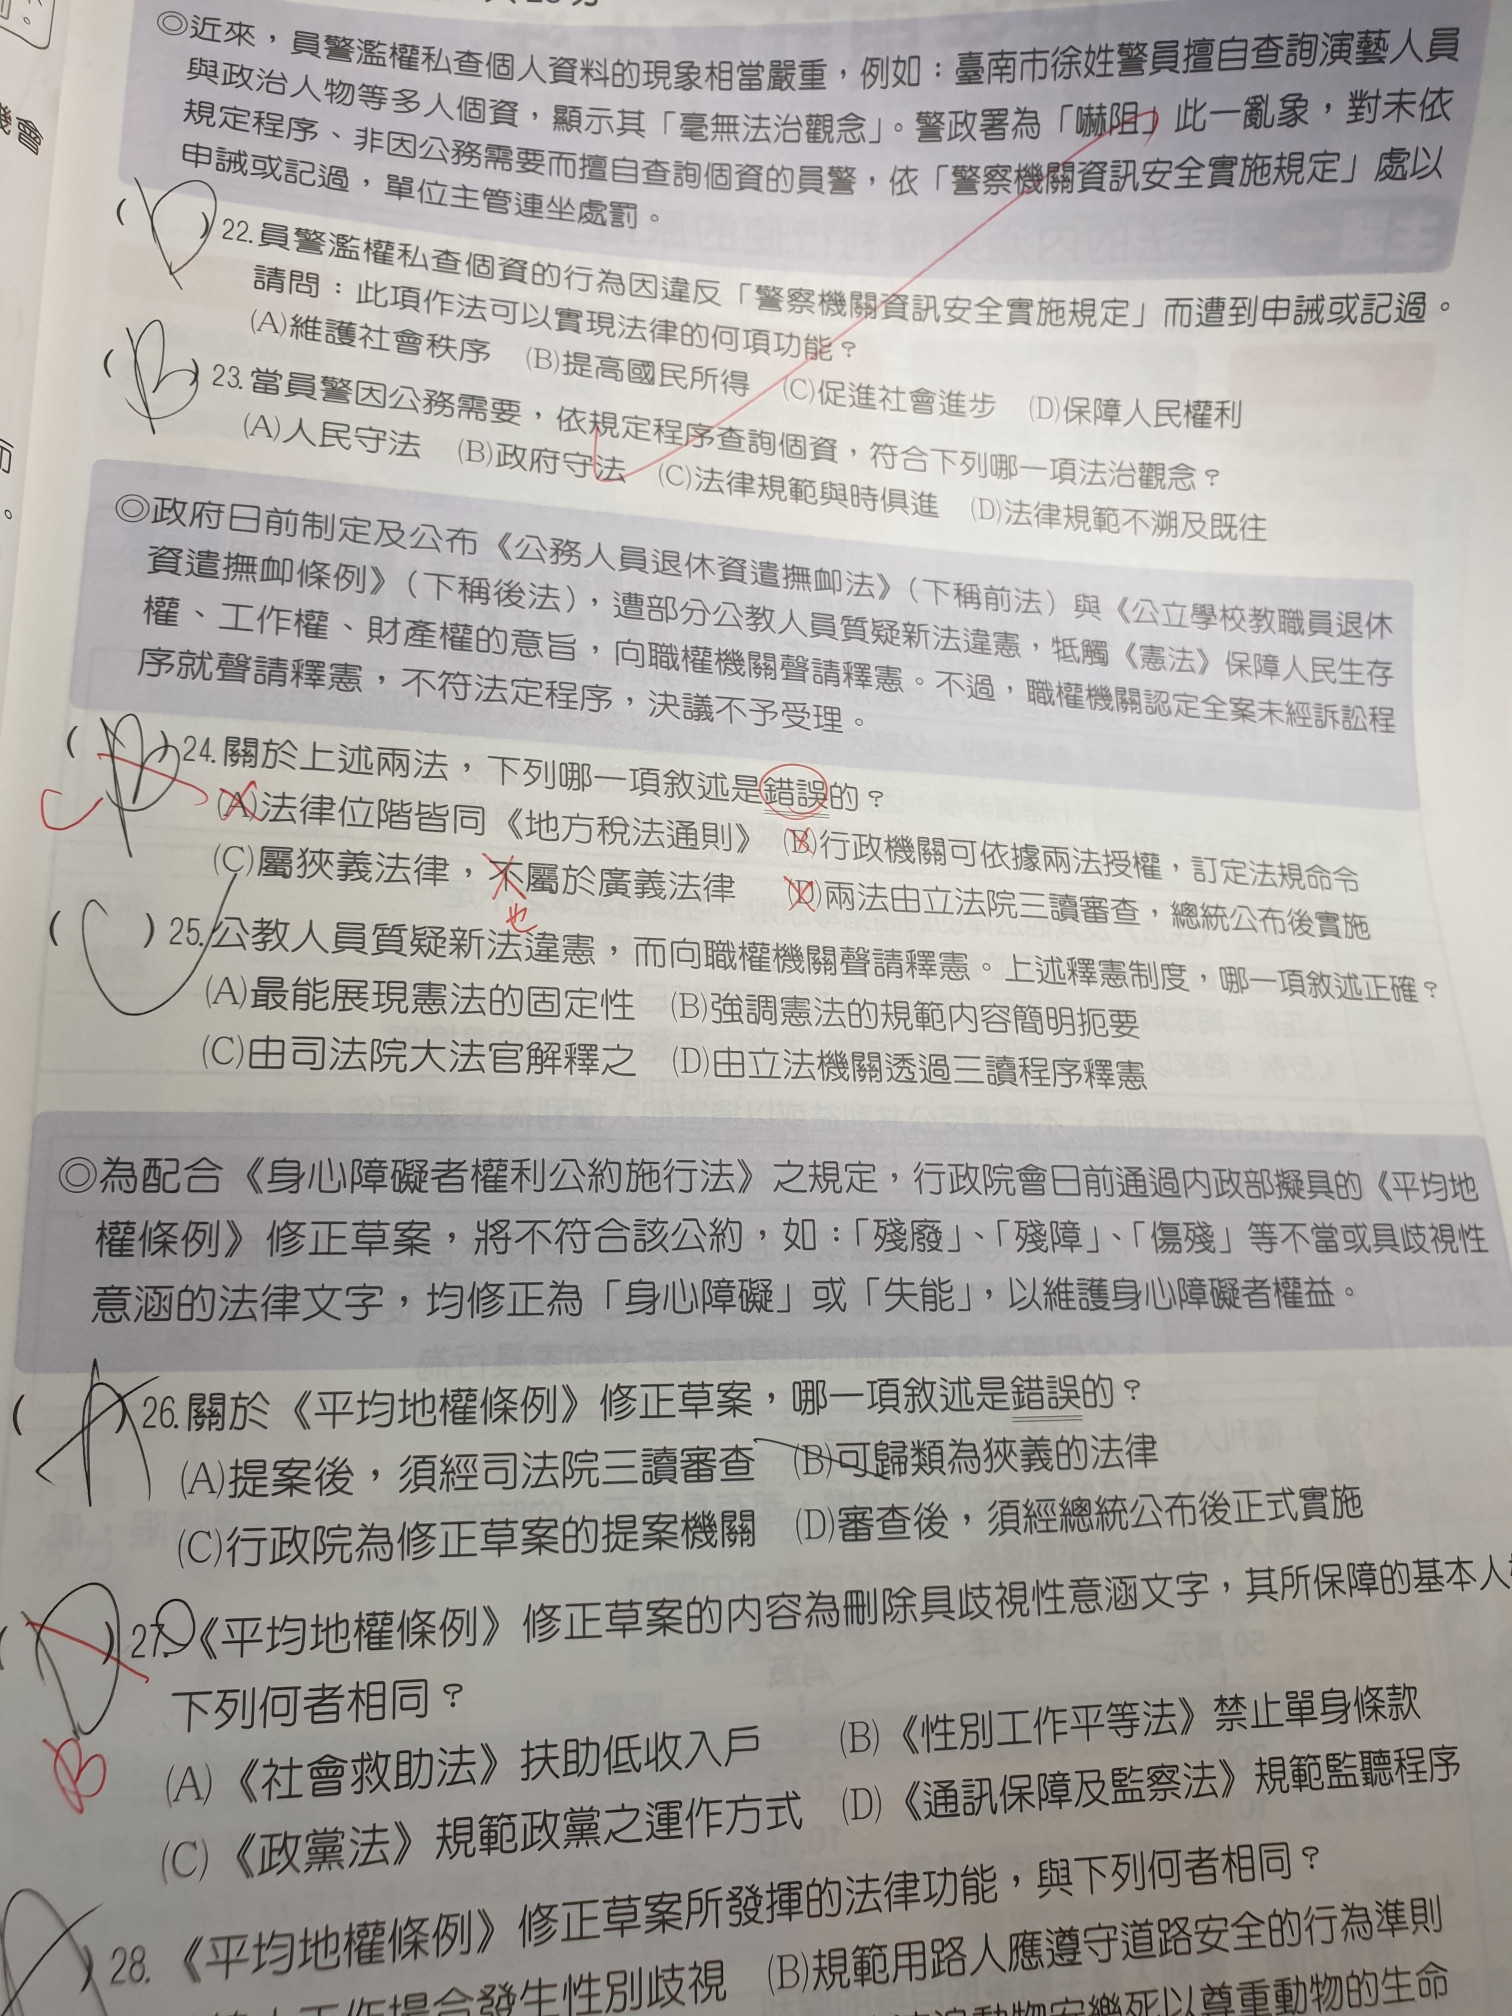 機會
◎近來，員警濫權私查個人資料的現象相當嚴重，例如：臺南市徐姓警員擅自查詢演藝人員
與政治人物等多人個資，顯示其「毫無法治觀念」。警政署為「嚇阻」此一亂象，對未依
規定程序、非因公務需要而擅自查詢個資的員警，依「警察機關資訊安全實施規定」處以
申誡或記過，單位主管連坐處罰。
( D )22.員警濫權私查個資的行為因違反「警察機關資訊安全實施規定」而遭到申誡或記過。
請問：此項作法可以實現法律的何項功能？
(A)維護社會秩序 (B)提高國民所得 (C)促進社會進步 (D)保障人民權利
( B )23.當員警因公務需要，依規定程序查詢個資，符合下列哪一項法治觀念？
(A)人民守法 (B)政府守法 (C)法律規範與時俱進 (D)法律規範不溯及既往
◎政府日前制定及公布《公務人員退休資遣撫卹法》（下稱前法）與《公立學校教職員退休
資遣撫卹條例》（下稱後法），遭部分公教人員質疑新法違憲，牴觸《憲法》保障人民生存
權、工作權、財產權的意旨，向職權機關聲請釋憲。不過，職權機關認定全案未經訴訟程
序就聲請釋憲，不符法定程序，決議不予受理。
( )24.關於上述兩法，下列哪一項敘述是錯誤的？
C
(A)法律位階皆同《地方稅法通則》 (B)行政機關可依據兩法授權，訂定法規命令
(C)屬狹義法律，不屬於廣義法律 (D)兩法由立法院三讀審查，總統公布後實施
也
( C )25.公教人員質疑新法違憲，而向職權機關聲請釋憲。上述釋憲制度，哪一項敘述正確？
(A)最能展現憲法的固定性 (B)強調憲法的規範內容簡明扼要
(C)由司法院大法官解釋之 (D)由立法機關透過三讀程序釋憲
◎為配合《身心障礙者權利公約施行法》之規定，行政院會日前通過內政部擬具的《平均地
權條例》修正草案，將不符合該公約，如：「殘廢」、「殘障」、「傷殘」等不當或具歧視性
意涵的法律文字，均修正為「身心障礙」或「失能」，以維護身心障礙者權益。
( A )26.關於《平均地權條例》修正草案，哪一項敘述是錯誤的？
(A)提案後，須經司法院三讀審查 (B)可歸類為狹義的法律
(C)行政院為修正草案的提案機關 (D)審查後，須經總統公布後正式實施
( D )27.《平均地權條例》修正草案的內容為刪除具歧視性意涵文字，其所保障的基本人
下列何者相同？
B
(A)《社會救助法》扶助低收入戶 (B)《性別工作平等法》禁止單身條款
(C)《政黨法》規範政黨之運作方式 (D)《通訊保障及監察法》規範監聽程序
)28.《平均地權條例》修正草案所發揮的法律功能，與下列何者相同？
工作場合發生性別歧視 (B)規範用路人應遵守道路安全的行為準則
動物安樂死以尊重動物的生命